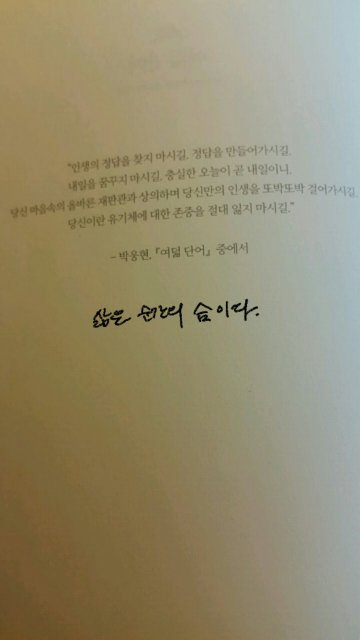 "인생의 정답을 찾지 마시길. 정답을 만들어가시길.
내일을 꿈꾸지 마시길. 충실한 오늘이 곧 내일이니.
당신 마음속의 올바른 재판관과 상의하며 당신만의 인생을 또박또박 걸어가시길.
당신이란 유기체에 대한 존중을 절대 잃지 마시길."
– 박웅현, 『여덟 단어』 중에서
삶은 순간의 합이다.